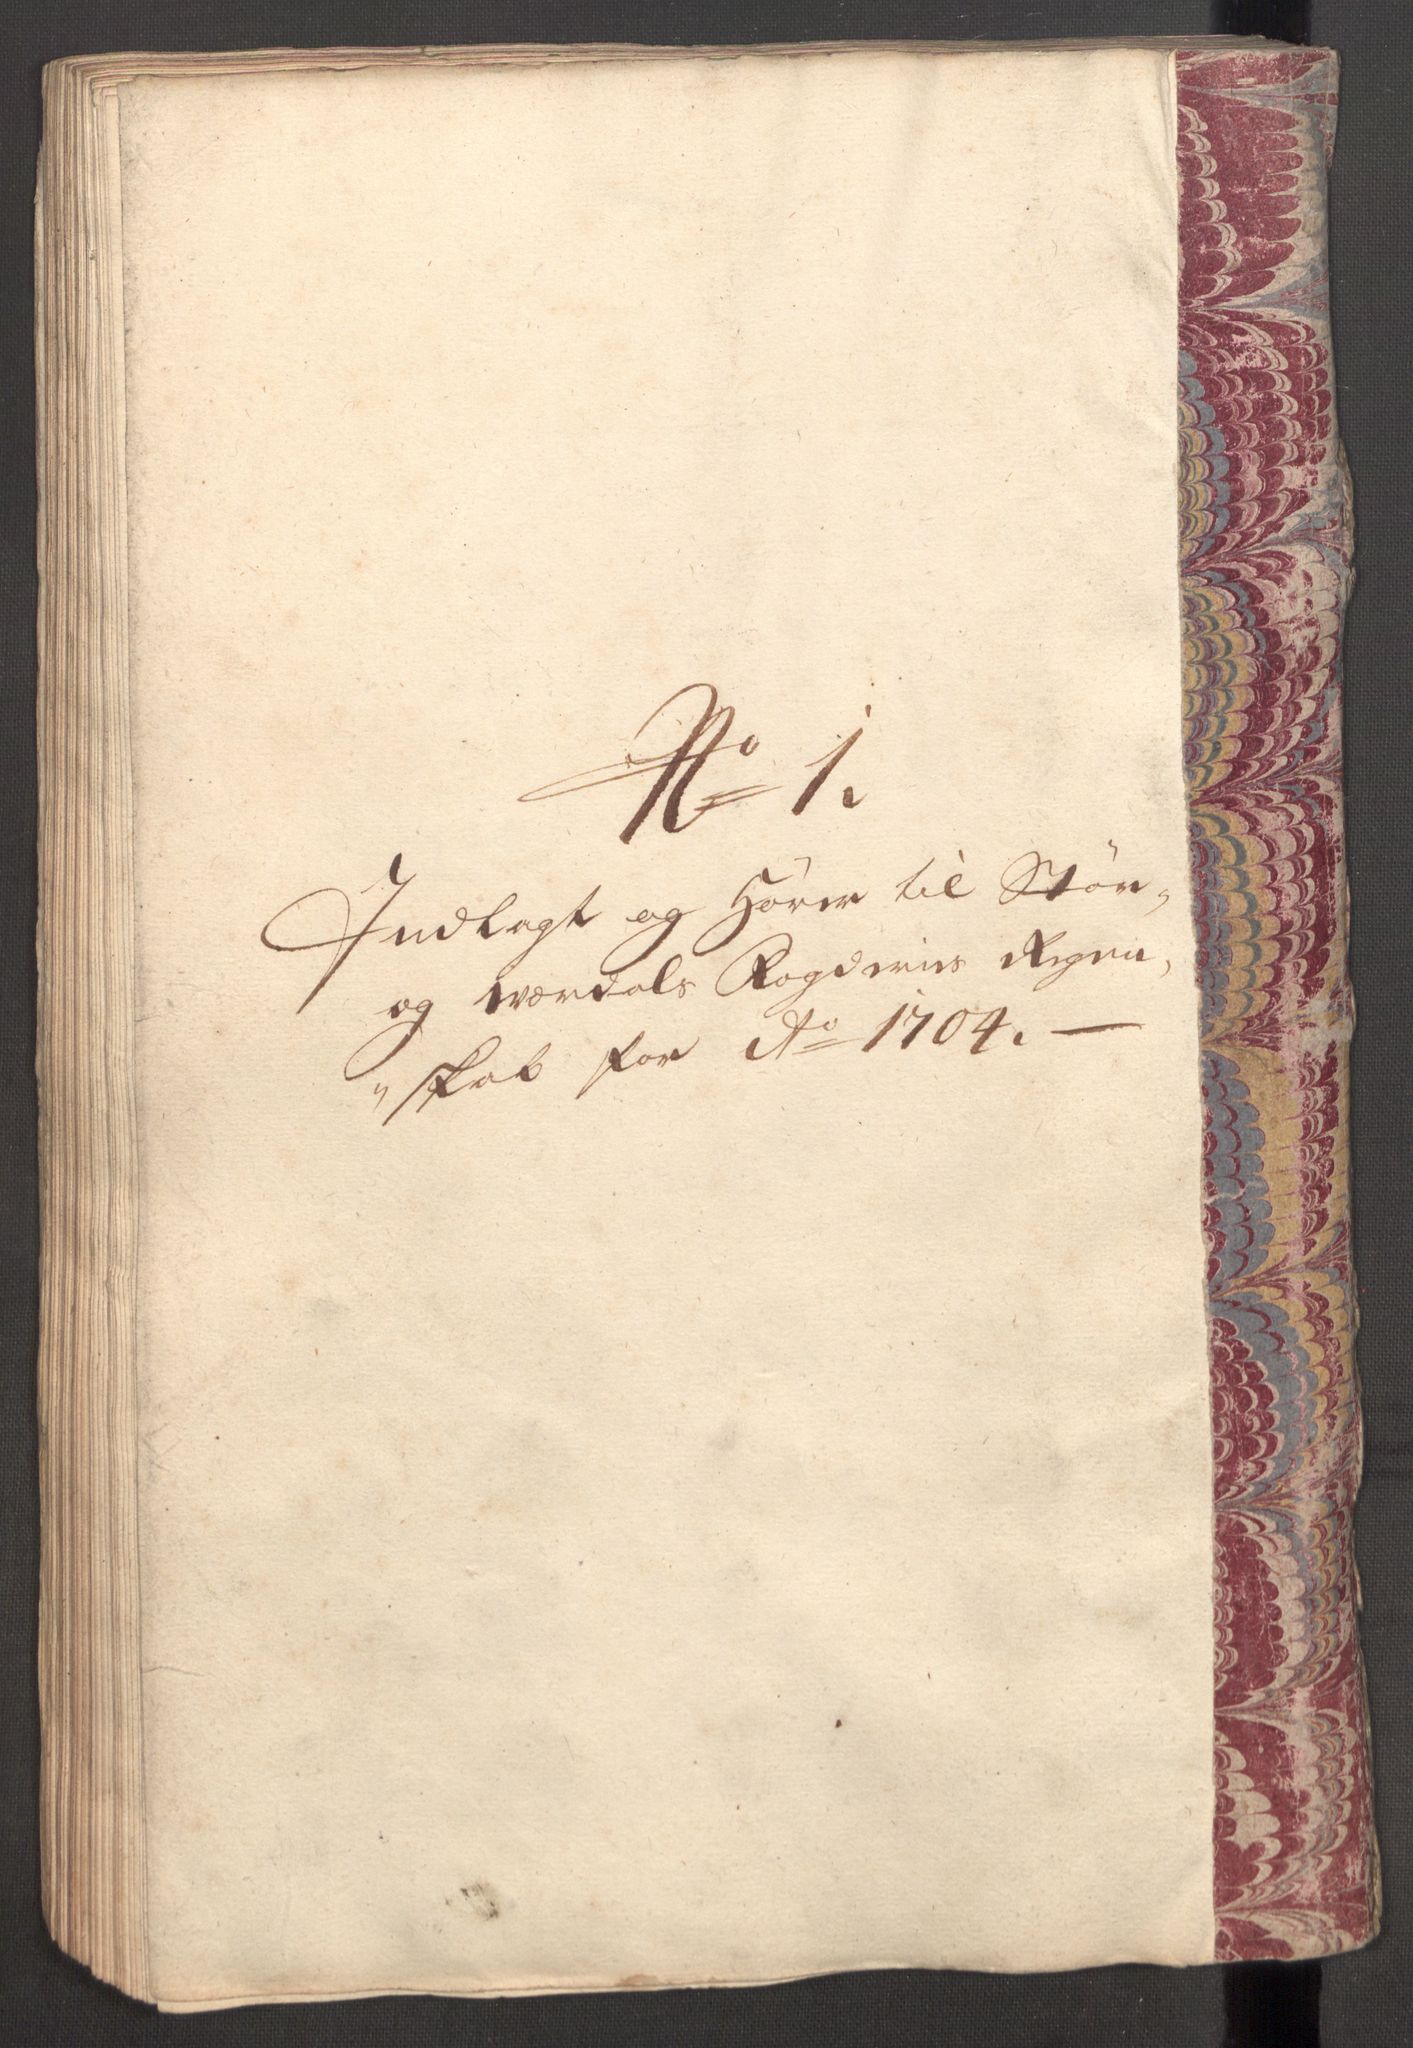 No 1.
Indlagt og Hörer til Stör-
og Værdals Fogderies Regen-
"skab for Ao 1704. —